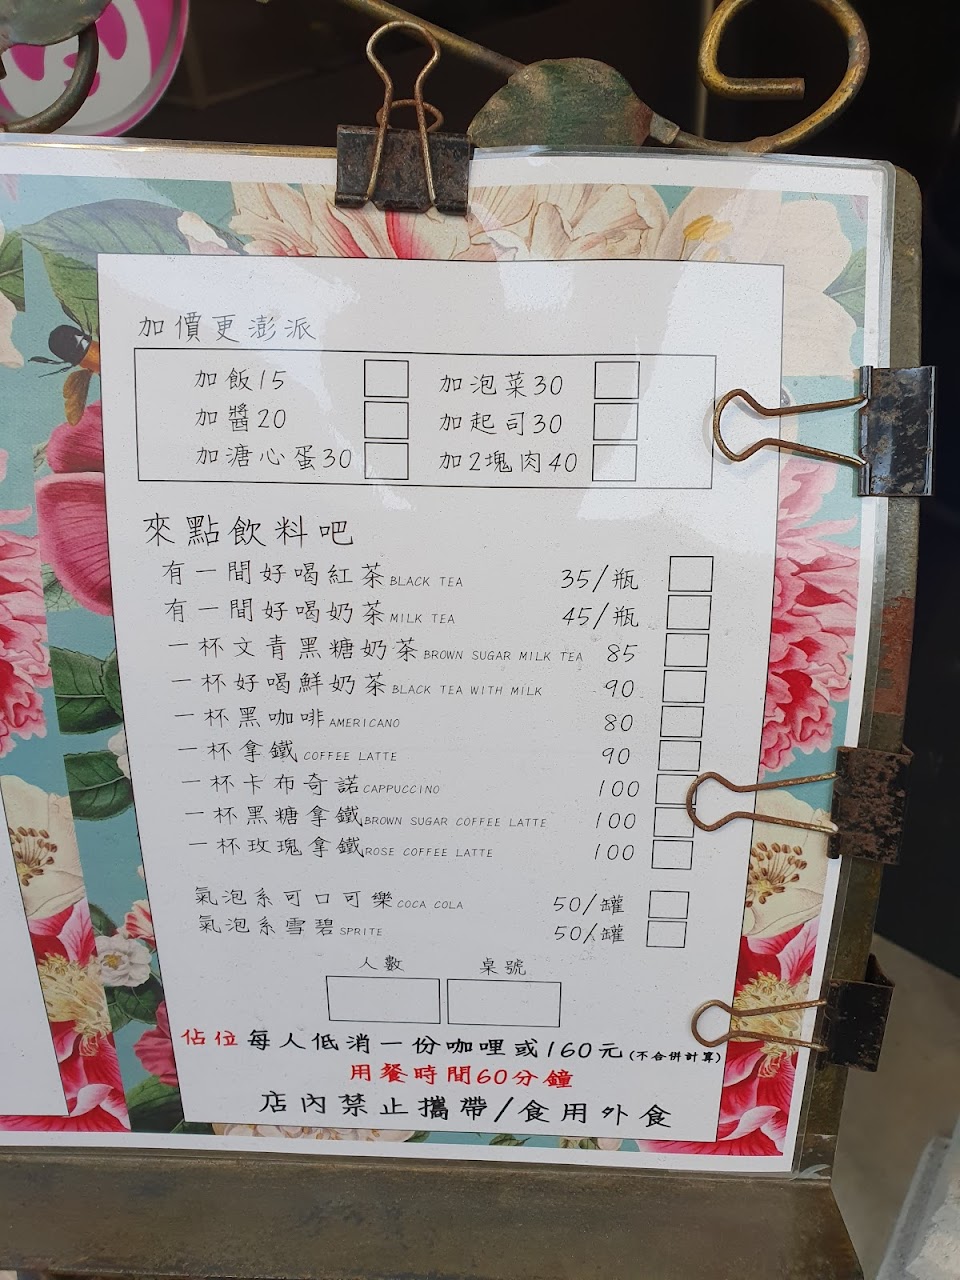 加價更澎派
加飯15 加泡菜30
加醬20 加起司30
加溏心蛋30 加2塊肉40
來點飲料吧
有一間好喝紅茶 BLACK TEA 35/瓶
有一間好喝奶茶 MILK TEA 45/瓶
一杯文青黑糖奶茶 BROWN SUGAR MILK TEA 85
一杯好喝鮮奶茶 BLACK TEA WITH MILK 90
一杯黑咖啡 AMERICANO 80
一杯拿鐵 COFFEE LATTE 90
一杯卡布奇諾 CAPPUCCINO 100
一杯黑糖拿鐵 BROWN SUGAR COFFEE LATTE 100
一杯玫瑰拿鐵 ROSE COFFEE LATTE 100
氣泡系可口可樂 COCA COLA 50/罐
氣泡系雪碧 SPRITE 50/罐
人數 桌號
佔位每人低消一份咖哩或160元(不合併計算)
用餐時間60分鐘
店內禁止攜帶/食用外食